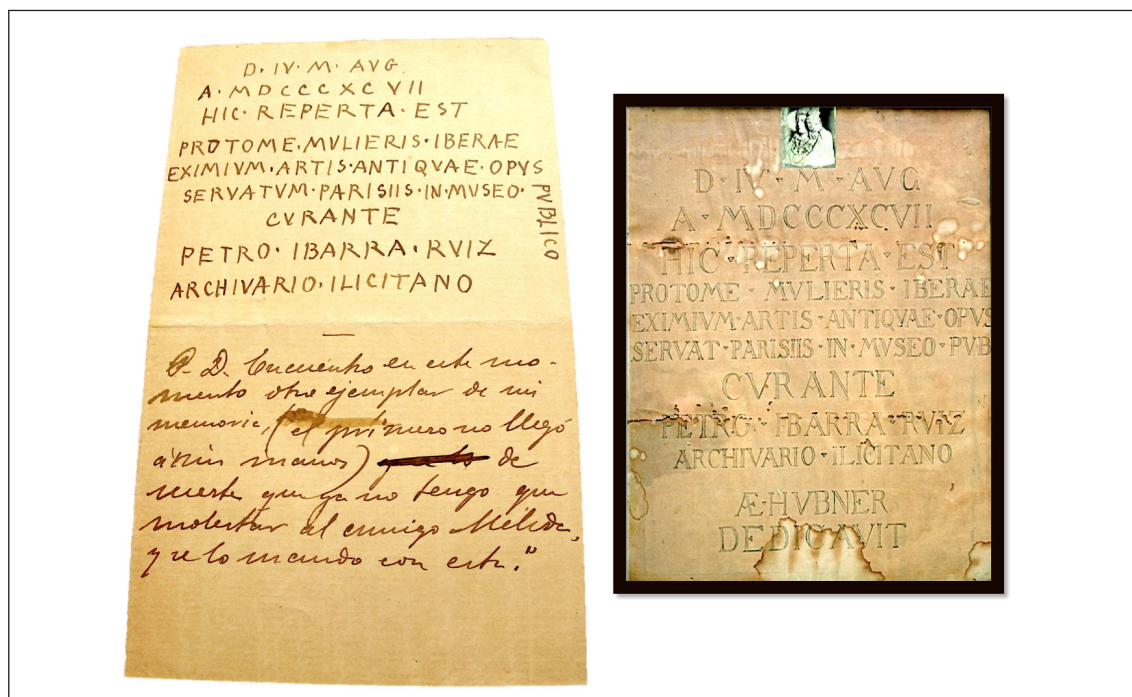 D·IV·M·AVG
A·MDCCCXCVII
HIC·REPERTA·EST
PROTOME·MVLIERIS·IBERAE
EXIMIVM·ARTIS·ANTIQVAE·OPVS
SERVATVM·PARISIIS·IN·MVSEO·
PVBLICO
CVRANTE
PETRO·IBARRA·RVIZ
ARCHIVARIO·ILICITANO
P. D. Encuentro en este mo-
mento otro ejemplar de mi
memoria, (el primero no llegó
á manos) de
suerte que ya no tengo que
molestar al amigo Mélida,
y se lo mando con esta."
D·IV·M·AVG
A·MDCCCXCVII
HIC·REPERTA·EST
PROTOME·MVLIERIS·IBERAE
EXIMIVM·ARTIS·ANTIQVAE·OPVS
SERVAT·PARISIIS·IN·MVSEO·PVB
CVRANTE
PETRO·IBARRA·RVIZ
ARCHIVARIO·ILICITANO
Æ·HVBNER
DEDICAVIT